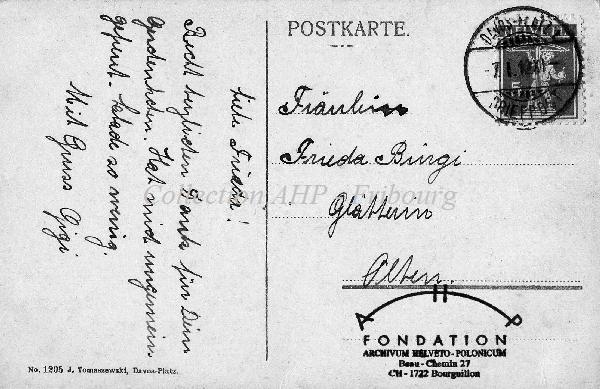 Liebe Frieda!
Recht herzlichen Dank für Dein
Gedenken. Hat mich ungemein
gefreut. so wenig.
Mit Gruss Gigi
No. 1205 J. Tomaszewski, Davos-Platz.
POSTKARTE.
DAVOS-PLATZ
Fräulein
Frieda Bürgi
Glätterin
Olten.
AHP
FONDATION
ARCHIVUM HELVETO-POLONICUM
Beau-Chemin 27
CH-1722 Bourguillon
Collection AHP - Fribourg